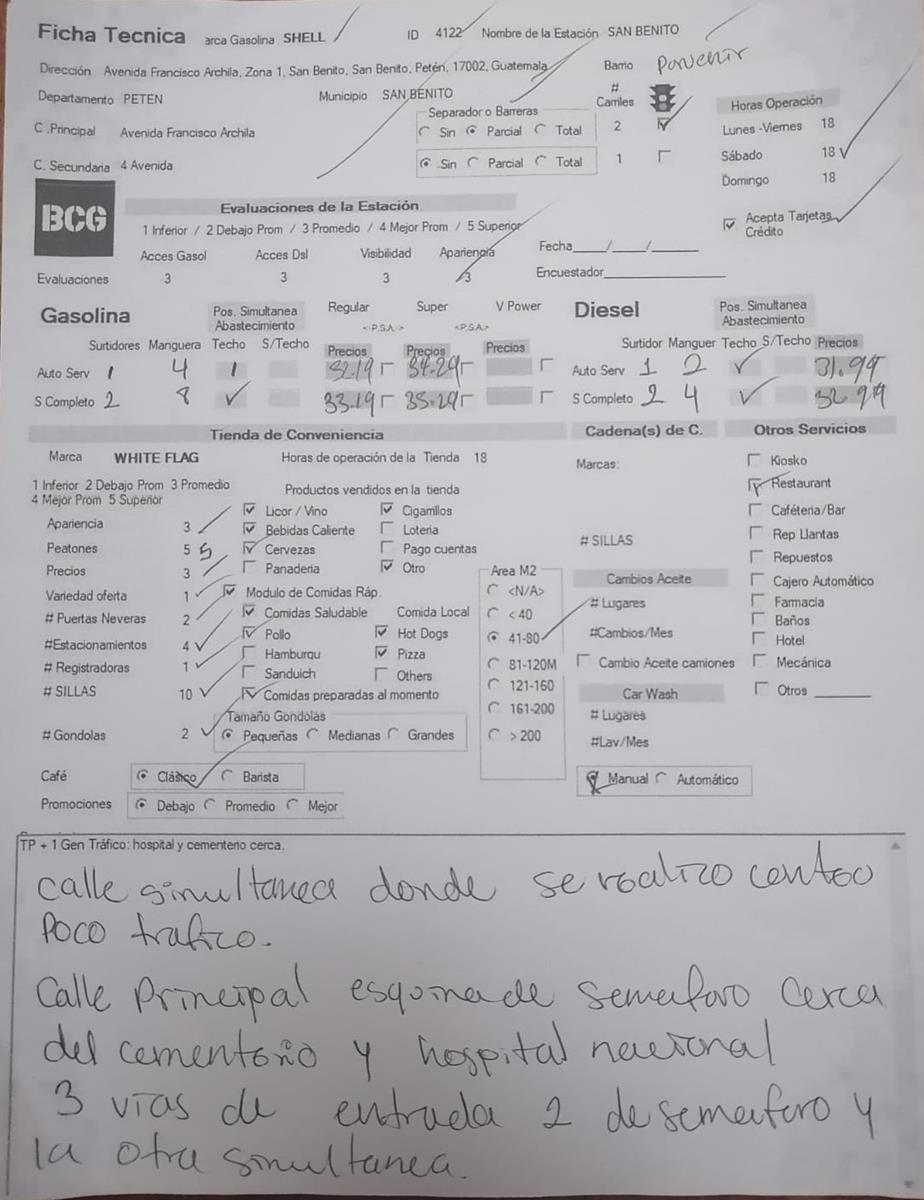 Ficha Tecnica arca Gasolina SHELL ID 4122 Nombre de la Estación SAN BENITO
Dirección Avenida Francisco Archila, Zona 1, San Benito, San Benito, Petén, 17002, Guatemala Barrio Porvenir
Departamento PETEN Municipio SAN BENITO # Carriles Horas Operación
Separador o Barreras
C .Principal Avenida Francisco Archila Sin Parcial Total 2 Lunes -Viernes 18
C. Secundaria 4 Avenida Sin Parcial Total 1 Sábado 18
Domingo 18
BCG
Evaluaciones de la Estación
1 Inferior / 2 Debajo Prom / 3 Promedio / 4 Mejor Prom / 5 Superior
Acepta Tarjetas Crédito
Acces Gasol Acces Dsl Visibilidad Apariencia Fecha___/___/___
Evaluaciones 3 3 3 3 Encuestador
Gasolina Pos. Simultanea Abastecimiento Regular Super V Power Diesel Pos. Simultanea Abastecimiento
<-P.S.A.-> <-P.S.A.->
Surtidores Manguera Techo S/Techo Precios Precios Precios Surtidor Manguer Techo S/Techo Precios
Auto Serv 1 4 1 32.19 34.29 Auto Serv 1 2 31.99
S Completo 2 8 33.19 35.29 S Completo 2 4 32.99
Tienda de Conveniencia Cadena(s) de C. Otros Servicios
Marca WHITE FLAG Horas de operación de la Tienda 18 Marcas: Kiosko
1 Inferior 2 Debajo Prom 3 Promedio
4 Mejor Prom 5 Superior
Productos vendidos en la tienda Restaurant
Apariencia 3 Licor / Vino Cigarrillos Caféteria/Bar
Bebidas Caliente Loteria Rep Llantas
Peatones 5 5 Cervezas Pago cuentas # SILLAS Repuestos
Precios 3 Panaderia Otro Area M2 Cambios Aceite Cajero Automático
Variedad oferta 1 Modulo de Comidas Ráp. <N/A> # Lugares Farmacia
# Puertas Neveras 2 Comidas Saludable Comida Local < 40 Baños
#Estacionamientos 4 Pollo Hot Dogs 41-80 #Cambios/Mes Hotel
# Registradoras 1 Hamburqu Pizza 81-120M Cambio Aceite camiones Mecánica
# SILLAS 10 Sanduich Others 121-160 Car Wash Otros
Comidas preparadas al momento 161-200 # Lugares
Tamaño Gondolas
# Gondolas 2 Pequeñas Medianas Grandes > 200 #Lav/Mes
Café Clásico Barista Manual Automático
Promociones Debajo Promedio Mejor
TP + 1 Gen Tráfico: hospital y cementerio cerca.
calle simultanea donde se realizo conteo
poco trafico.
Calle Principal esquina de semaforo cerca
del cementerio y hospital nacional
3 vias de entrada 2 de semaforo y
la otra simultanea.